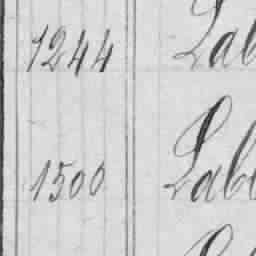 1244 Lab
1500 Labo